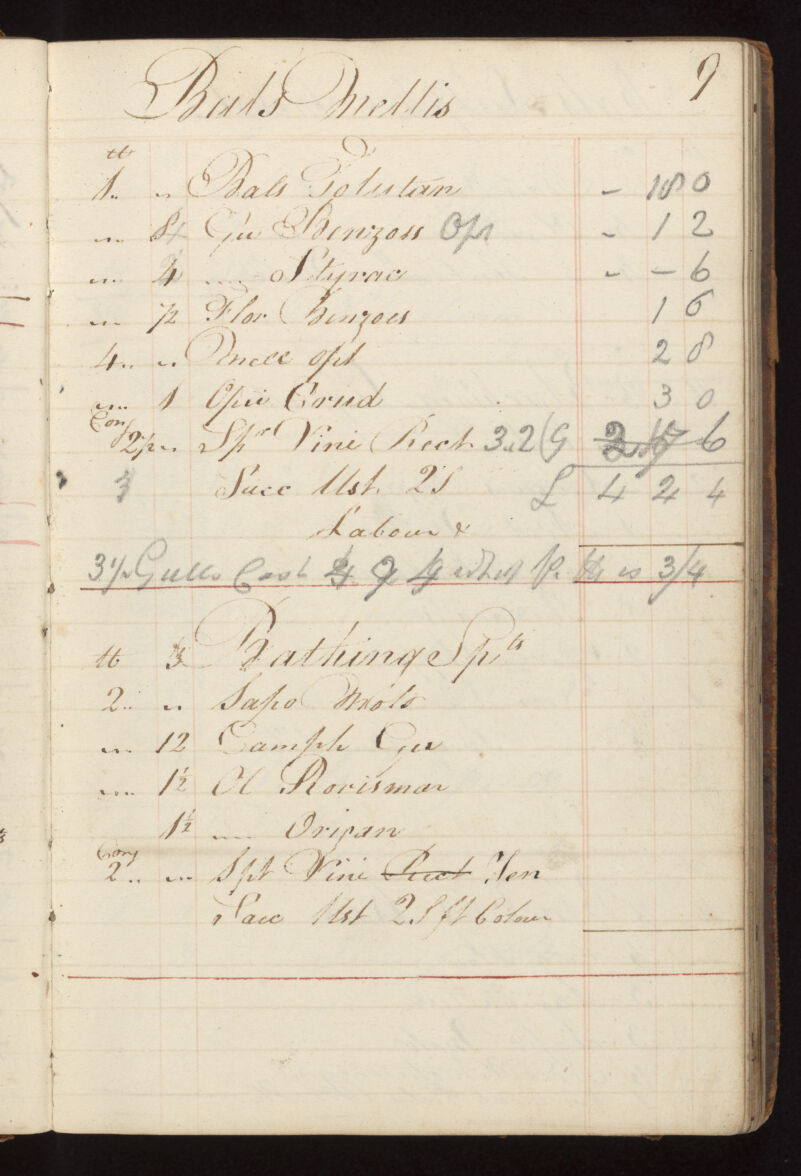 9
Bals Mellis
lb
1 " " Bals Tolutan - 18 0
" " 8 Gu Benzoes Opt - 1 2
" " 4 " " Styrac - - 6
" " ½ Flor Benzoes 1 6
4 " " Mell opt 2 8
" " 1 Opii Crud 3 0
Con 2½ " Spr Vini Rect 3.2(G 6
3 Sacc Ust 2S £ 4 2 4
Labour &
3½ Galls Cost 4 9 4 which Pr lb is 3/4
lb ℥ Bathing Spts
2 " " Sapo Moll
" " 12 Camph Gu
" " 1½ Ol Rorismar
1½ " " Origan
Cong 2 " " Spt Vini Rect Ten
Sacc Ust 2S ft Colour